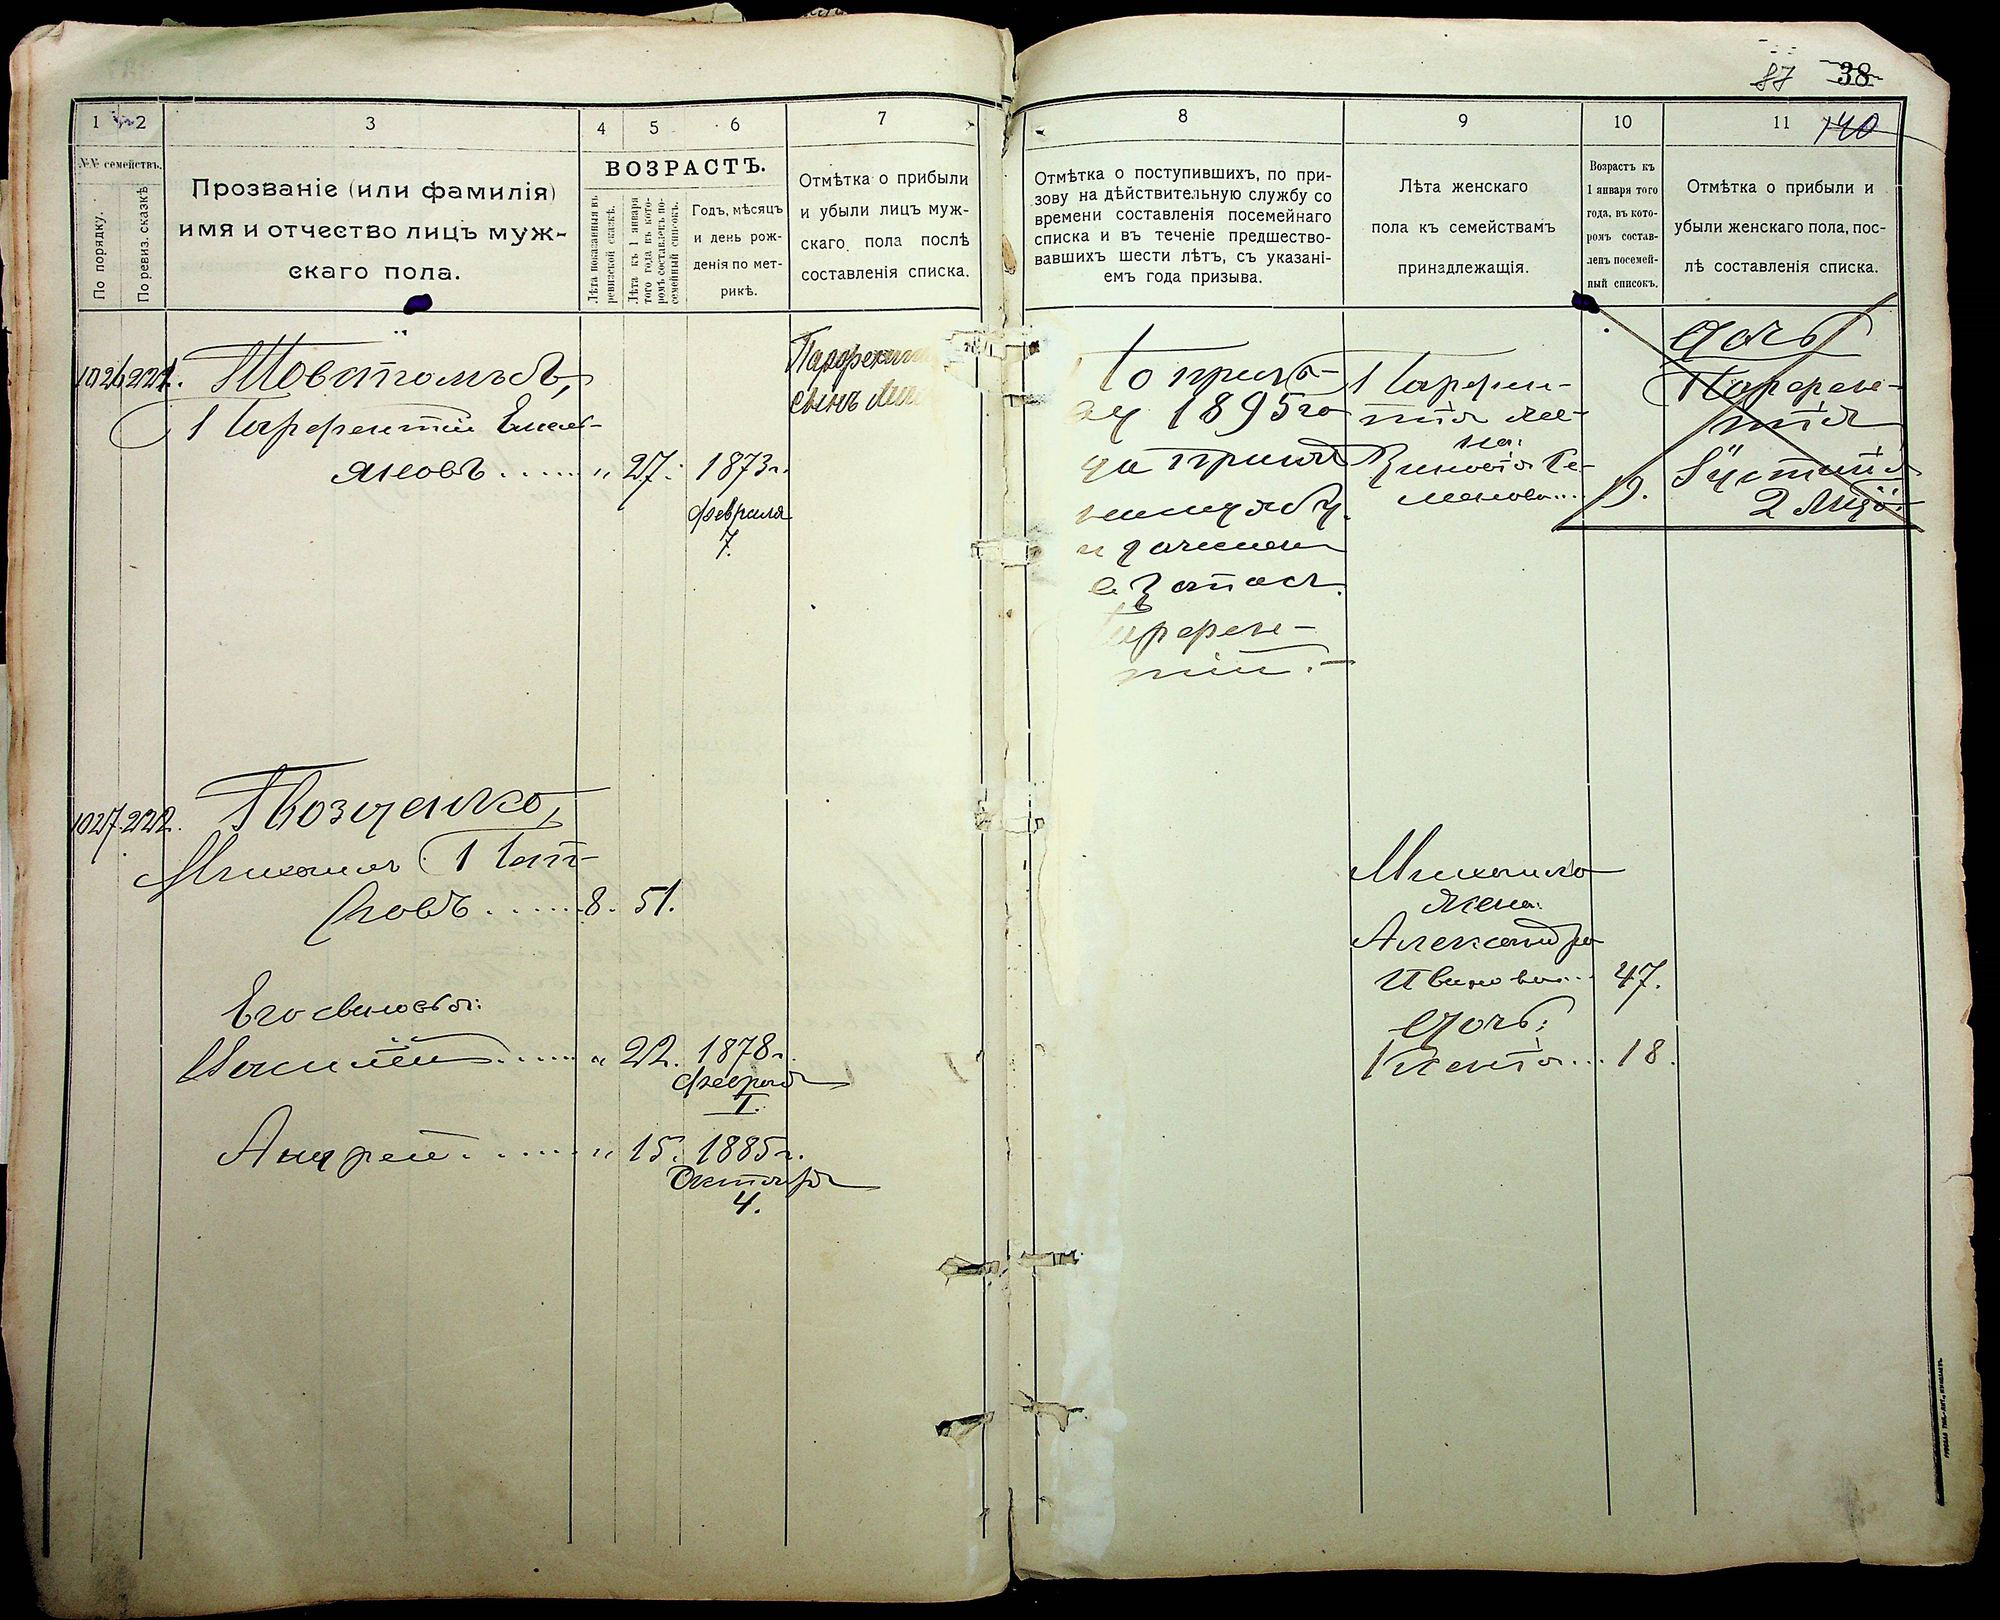 87 38
1 2 3 4 5 6 7
№№ семействъ.
По порядку.
По ревиз. сказкѣ
Прозваніе (или фамилія)
имя и отчество лицъ муж-
скаго пола.
ВОЗРАСТЪ.
Лѣта показанныя въ
ревизской сказкѣ.
Лѣта къ 1 января
того года въ кото-
ромъ составленъ по-
семейный списокъ.
Годъ, мѣсяцъ
и день рож-
денія по мет-
рикѣ.
Отмѣтка о прибыли
и убыли лицъ муж-
скаго пола послѣ
составленія списка.
1026 221.
Парфентій Емель-
яновъ " 27. 1873 г.
февраля
7.
Парфентія
сынъ
1027. 222. Гвозденко,
Михаилъ
8. 51.
Его сыновья:
Василій " 22. 1878 г.
февраля
1.
Андрей " 15. 1885 г.
Октября
4.
8 9 10 11 140
Отмѣтка о поступившихъ, по при-
зову на дѣйствительную службу со
времени составленія посемейнаго
списка и въ теченіе предшество-
вавшихъ шести лѣтъ, съ указані-
емъ года призыва.
Лѣта женскаго
пола къ семействамъ
принадлежащія.
Возрастъ къ
1 января того
года, въ кото-
ромъ состав-
ленъ посемей-
ный списокъ.
Отмѣтка о прибыли и
убыли женскаго пола, пос-
лѣ составленія списка.
По призы-
ву 1895 го-
да принятъ
на службу
Парфен-
тій.
Парфен-
тія же-
на:
Дочь
Парфен-
тія
Устинія
2 лѣтъ
Михаила
жена:
Александра
Иванова 47.
Дочь:
Ксенія 18.